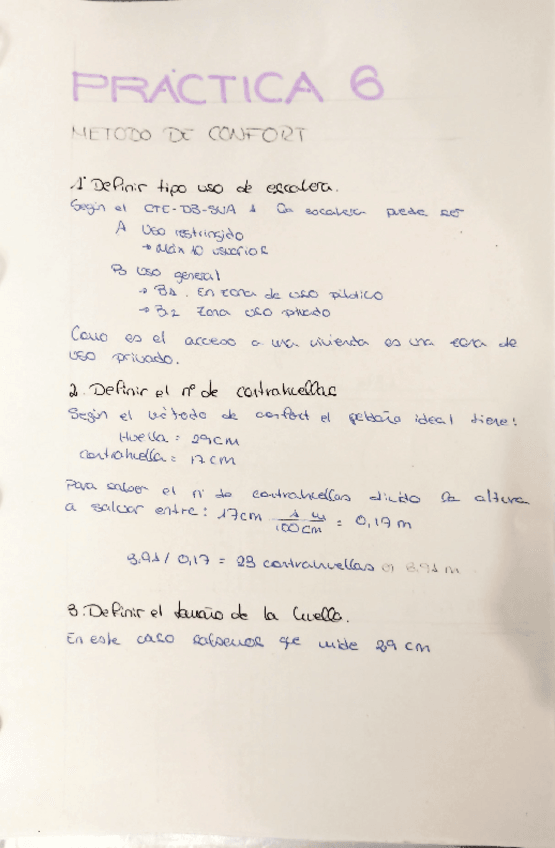 PRÁCTICA 6
METODO DE CONFORT
1º Definir tipo uso de escalera.
Según el CTE-DB-SUA 1 la escalera puede ser
A Uso restringido
→ Máx 10 usuarios
B Uso general
→ B1. En zona de uso público
→ B.2 Zona uso privado
Como es el acceso a una vivienda es una zona de
uso privado.
2. Definir el nº de contrahuellas
Según el método de confort el peldaño ideal tiene:
Huella = 29cm
contrahuella = 17cm
Para saber el nº de contrahuellas divido la altura
a salvar entre: 17cm 1 m / 100cm = 0,17 m
3.91 / 0,17 = 23 contrahuellas
3. Definir el tamaño de la huella.
En este caso sabemos qe mide 29 cm